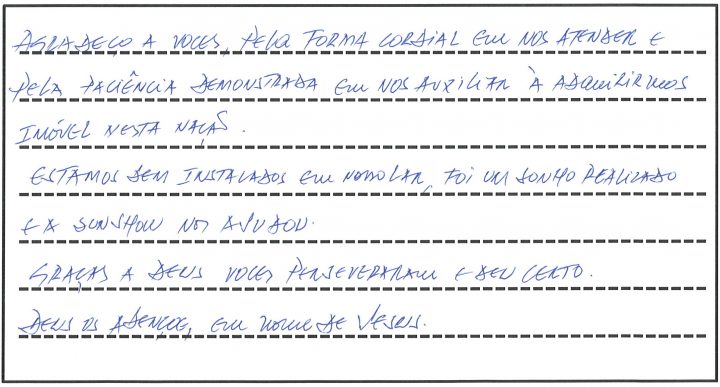 AGRADEÇO A VOCES, PELA FORMA CORDIAL EM NOS ATENDER E
PELA PACIÊNCIA DEMONSTRADA EM NOS AUXILIAR À ADQUIRIRMOS
IMÓVEL NESTA NAÇÃO.
ESTAMOS BEM INSTALADOS EM NOVO LAR, FOI UM SONHO REALIZADO
E A SUNSHOW NOS AJUDOU.
GRAÇAS A DEUS VOCES PERSEVERARAM E DEU CERTO.
DEUS OS ABENÇOE, EM NOME DE JESUS.